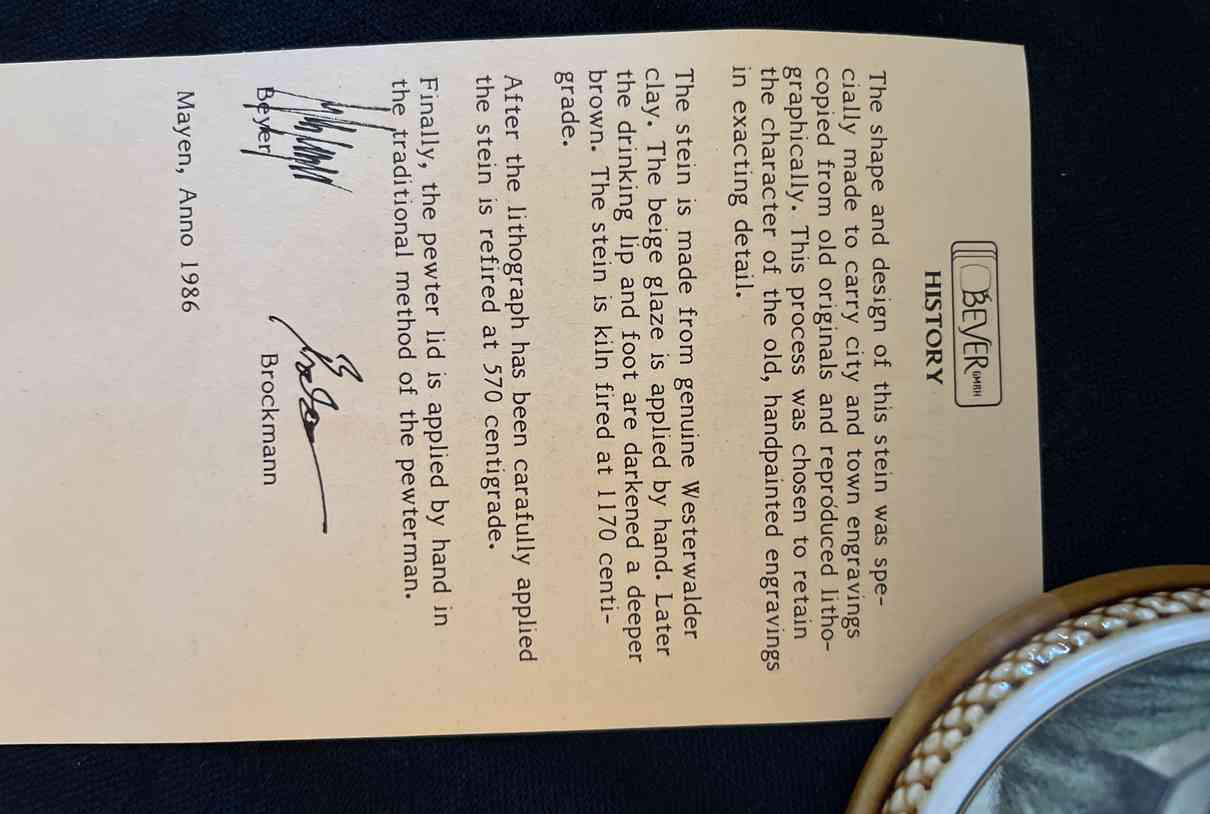 BEYER GMBH
HISTORY
The shape and design of this stein was spe-
cially made to carry city and town engravings
copied from old originals and reproduced litho-
graphically. This process was chosen to retain
the character of the old, handpainted engravings
in exacting detail.
The stein is made from genuine Westerwalder
clay. The beige glaze is applied by hand. Later
the drinking lip and foot are darkened a deeper
brown. The stein is kiln fired at 1170 centi-
grade.
After the lithograph has been carafully applied
the stein is refired at 570 centigrade.
Finally, the pewter lid is applied by hand in
the traditional method of the pewterman.
Beyer Brockmann
Mayen, Anno 1986